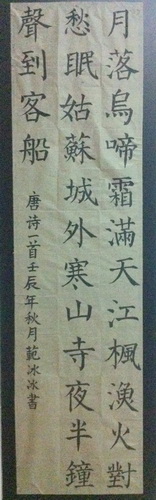 月落烏啼霜滿天江楓漁火對
愁眠姑蘇城外寒山寺夜半鐘
聲到客船
唐诗一首壬辰年秋月範冰冰書